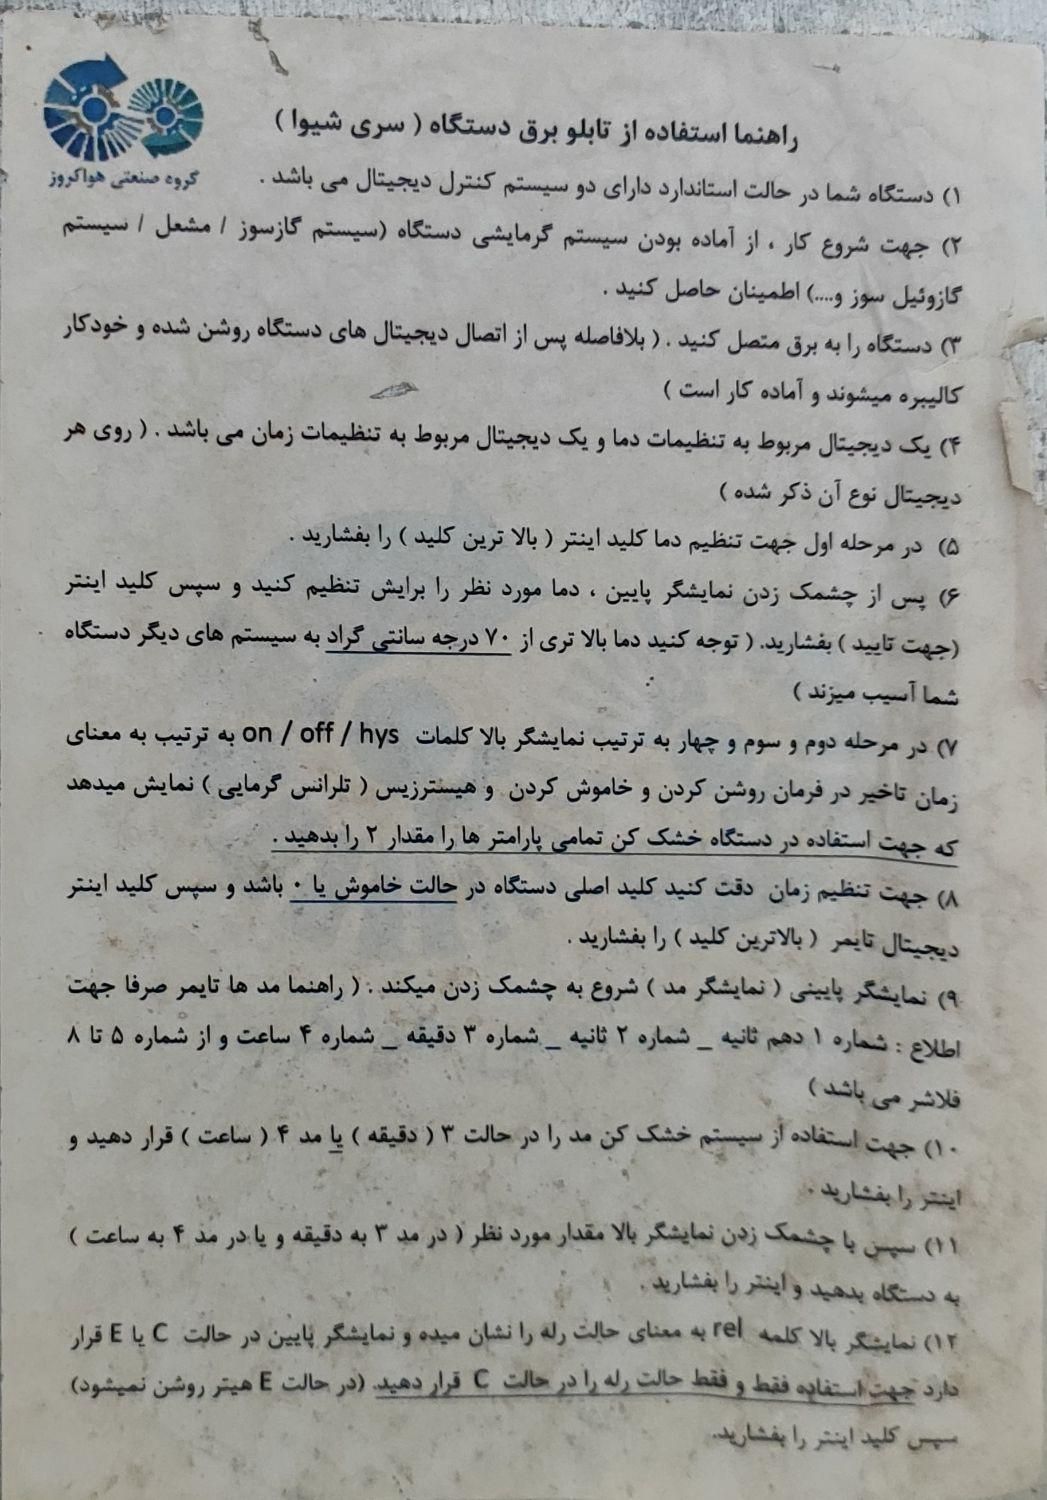 گروه صنعتی هواکروز
راهنما استفاده از تابلو برق دستگاه ( سری شیوا )
۱) دستگاه شما در حالت استاندارد دارای دو سیستم کنترل دیجیتال می باشد .
۲) جهت شروع کار ، از آماده بودن سیستم گرمایشی دستگاه (سیستم گازسوز / مشعل / سیستم
گازوئیل سوز و....) اطمینان حاصل کنید .
۳) دستگاه را به برق متصل کنید . ( بلافاصله پس از اتصال دیجیتال های دستگاه روشن شده و خودکار
کالیبره میشوند و آماده کار است )
۴) یک دیجیتال مربوط به تنظیمات دما و یک دیجیتال مربوط به تنظیمات زمان می باشد . ( روی هر
دیجیتال نوع آن ذکر شده )
۵) در مرحله اول جهت تنظیم دما کلید اینتر ( بالا ترین کلید ) را بفشارید .
۶) پس از چشمک زدن نمایشگر پایین ، دما مورد نظر را برایش تنظیم کنید و سپس کلید اینتر
(جهت تایید ) بفشارید. ( توجه کنید دما بالا تری از ۷۰ درجه سانتی گراد به سیستم های دیگر دستگاه
شما آسیب میزند )
۷) در مرحله دوم و سوم و چهار به ترتیب نمایشگر بالا کلمات on / off / hys به ترتیب به معنای
زمان تاخیر در فرمان روشن کردن و خاموش کردن و هیسترزیس ( تلرانس گرمایی ) نمایش میدهد
که جهت استفاده در دستگاه خشک کن تمامی پارامتر ها را مقدار ۲ را بدهید .
۸) جهت تنظیم زمان دقت کنید کلید اصلی دستگاه در حالت خاموش یا ۰ باشد و سپس کلید اینتر
دیجیتال تایمر ( بالاترین کلید ) را بفشارید .
۹) نمایشگر پایینی ( نمایشگر مد ) شروع به چشمک زدن میکند . ( راهنما مد ها تایمر صرفا جهت
اطلاع : شماره ۱ دهم ثانیه _ شماره ۲ ثانیه _ شماره ۳ دقیقه _ شماره ۴ ساعت و از شماره ۵ تا ۸
فلاشر می باشد )
۱۰) جهت استفاده از سیستم خشک کن مد را در حالت ۳ ( دقیقه ) یا مد ۴ ( ساعت ) قرار دهید و
اینتر را بفشارید .
۱۱) سپس با چشمک زدن نمایشگر بالا مقدار مورد نظر ( در مد ۳ به دقیقه و یا در مد ۴ به ساعت )
به دستگاه بدهید و اینتر را بفشارید .
۱۲) نمایشگر بالا کلمه rel به معنای حالت رله را نشان میده و نمایشگر پایین در حالت C یا E قرار
دارد جهت استفاده فقط و فقط حالت رله را در حالت C قرار دهید. (در حالت E هیتر روشن نمیشود)
سپس کلید اینتر را بفشارید.